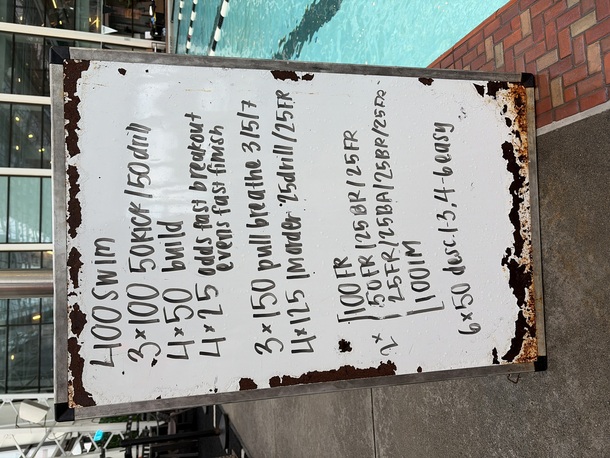 400 SWIM
3×100 50KICK/50drill
4×50 build
4×25 odds fast breakout
evens fast finish
3×150 pull breathe 3/5/7
4×125 IMorder 25drill/25FR
2× [100FR
50FR/25BR/25FR
25FR/25BA/25BR/25FR
[100IM
6×50 desc 1-3, 4-6 easy